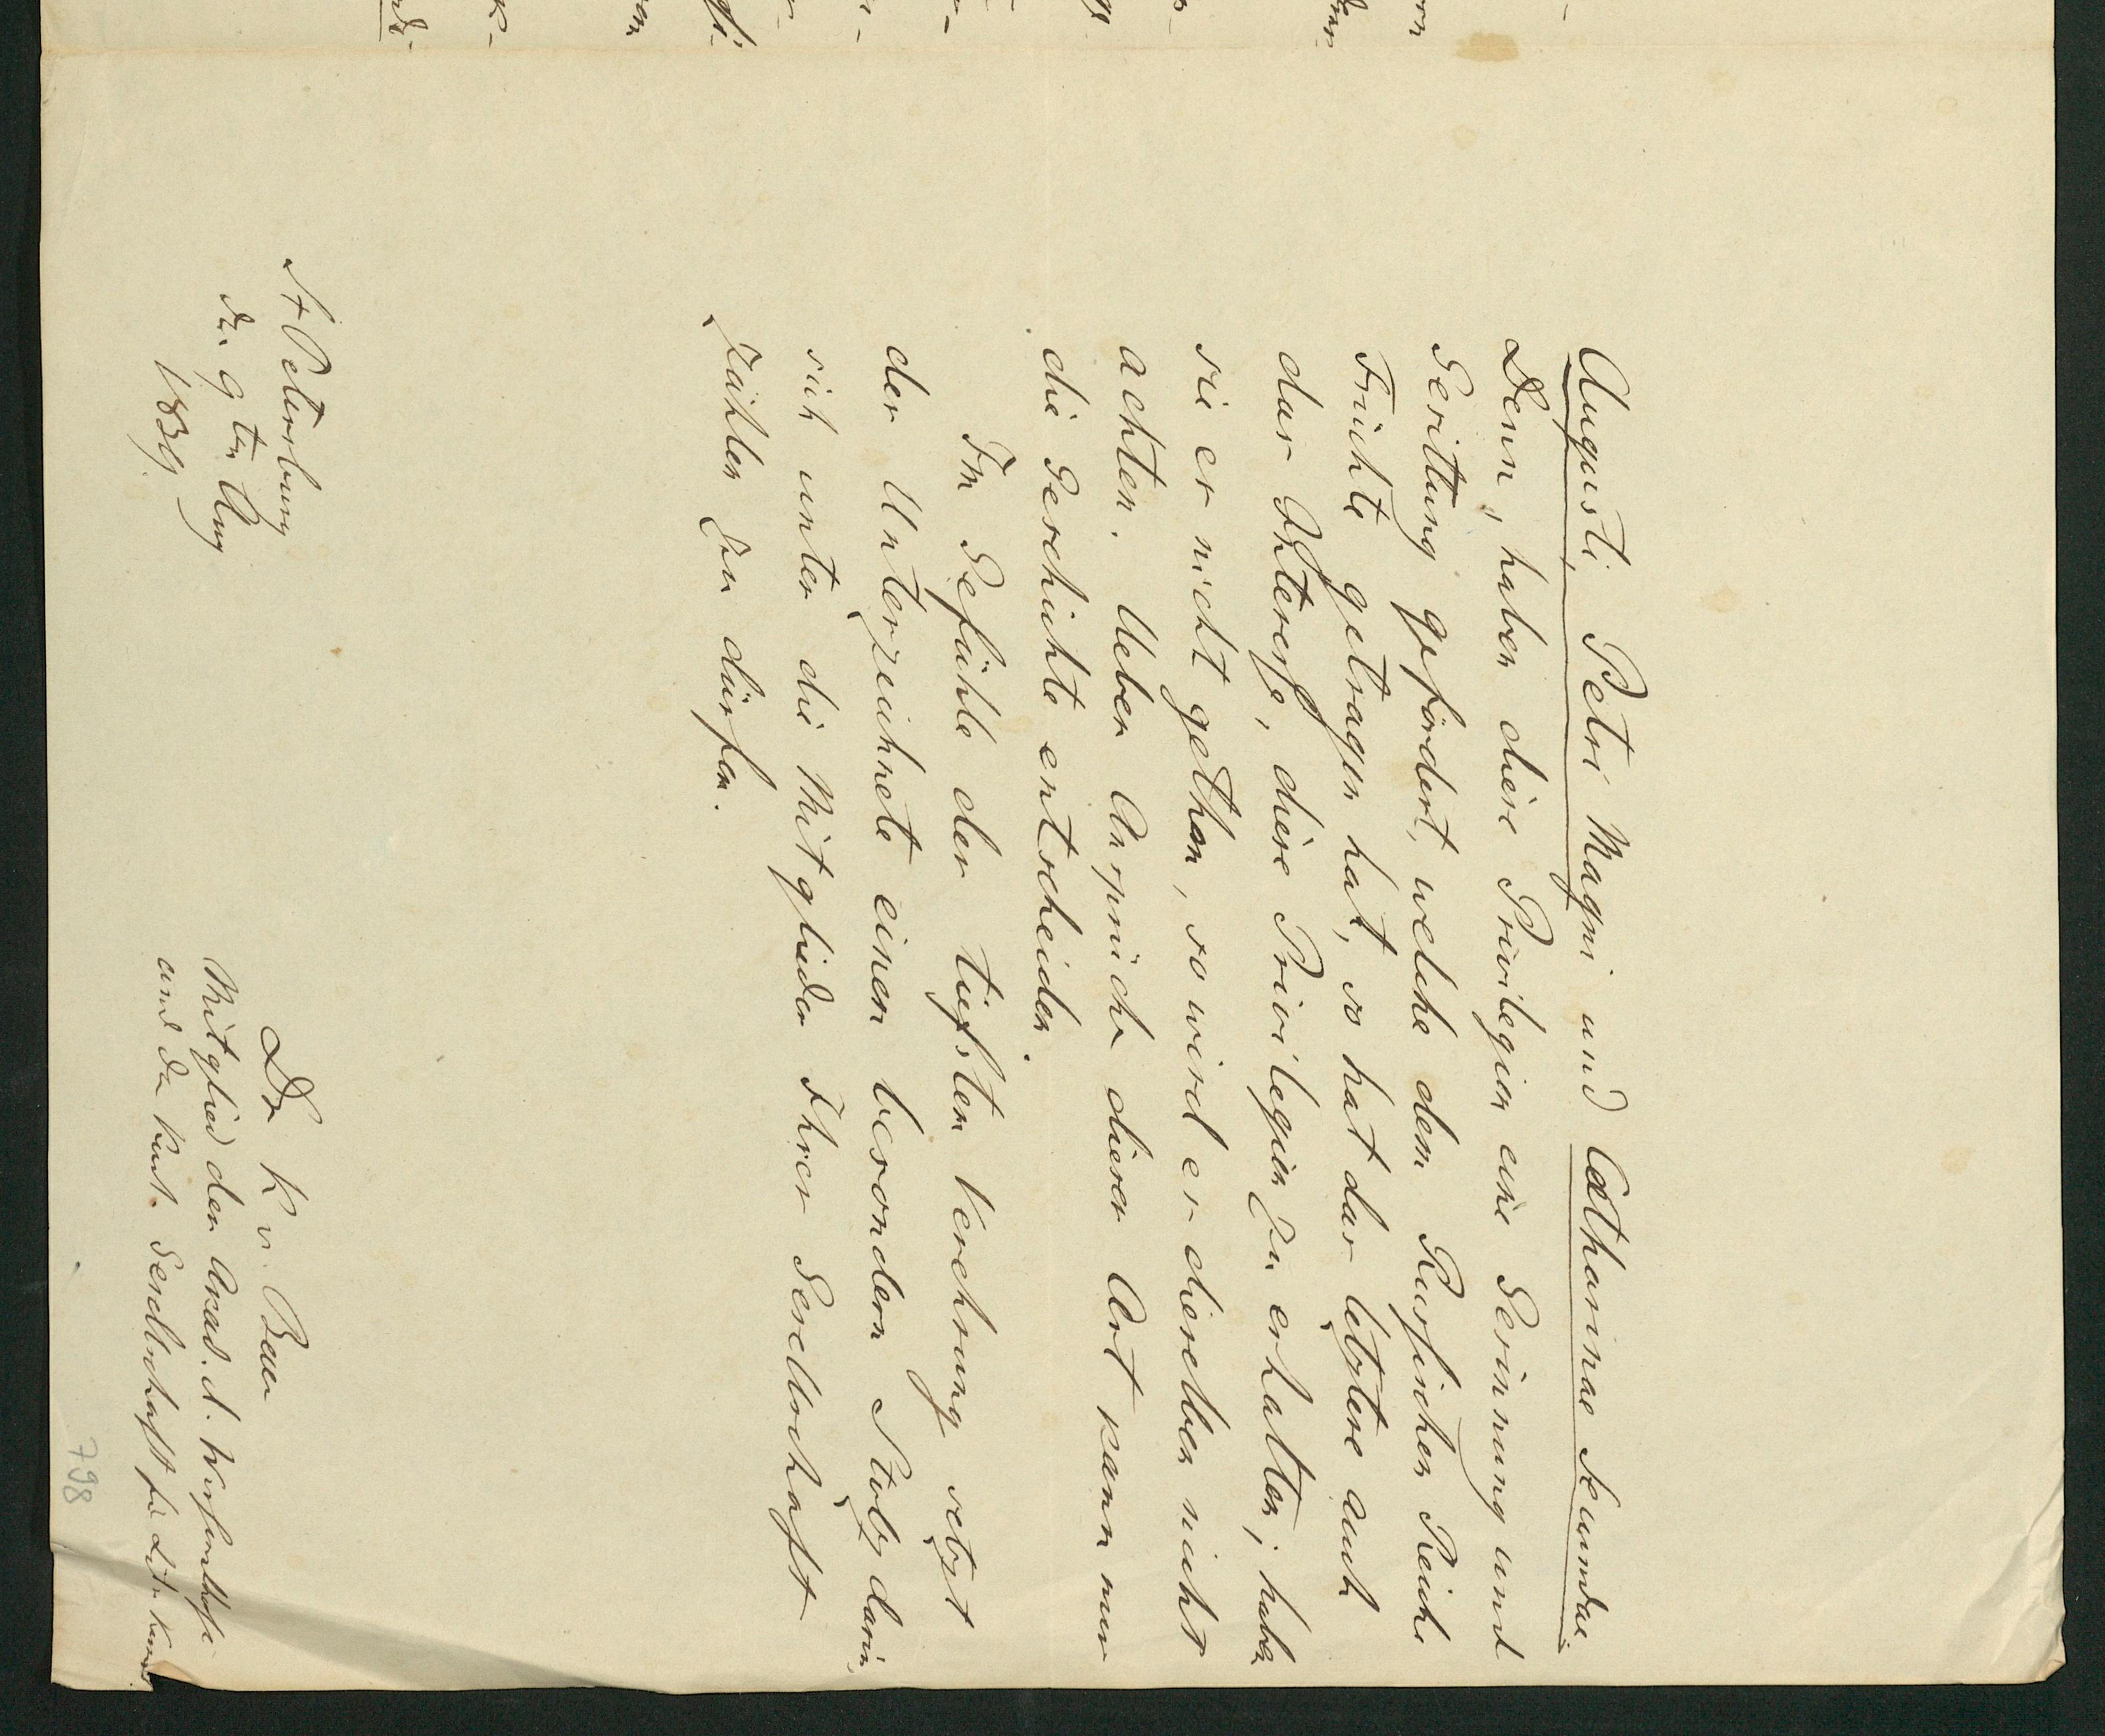 Augusti, Petri Magni und Catharinae secundae.
Denn, haben diese Privilegien eine Gesinnung und
Gesittung gefördert, welche dem Russischen Reiche
Früchte getragen hat, so hat das letztere auch
das Interesse, diese Privilegien zu erhalten; haben
sie es nicht gethan, so wird es dieselben nicht
achten. Ueber Ansprüche dieser Art kann nur
die Geschichte entscheiden.
Im Gefühle der tiefsten Verehrung setzt
der Unterzeichnete einen besondern Stolz darin,
sich unter die Mitglieder Ihrer Gesellschaft
zählen zu dürfen.
Dr K v. Baer
Mitglied der Akad. d. Wissensch
und der kurl. Gesellschaft für Lit u Kunst
St Petersburg
den 9ten Aug
1839
798